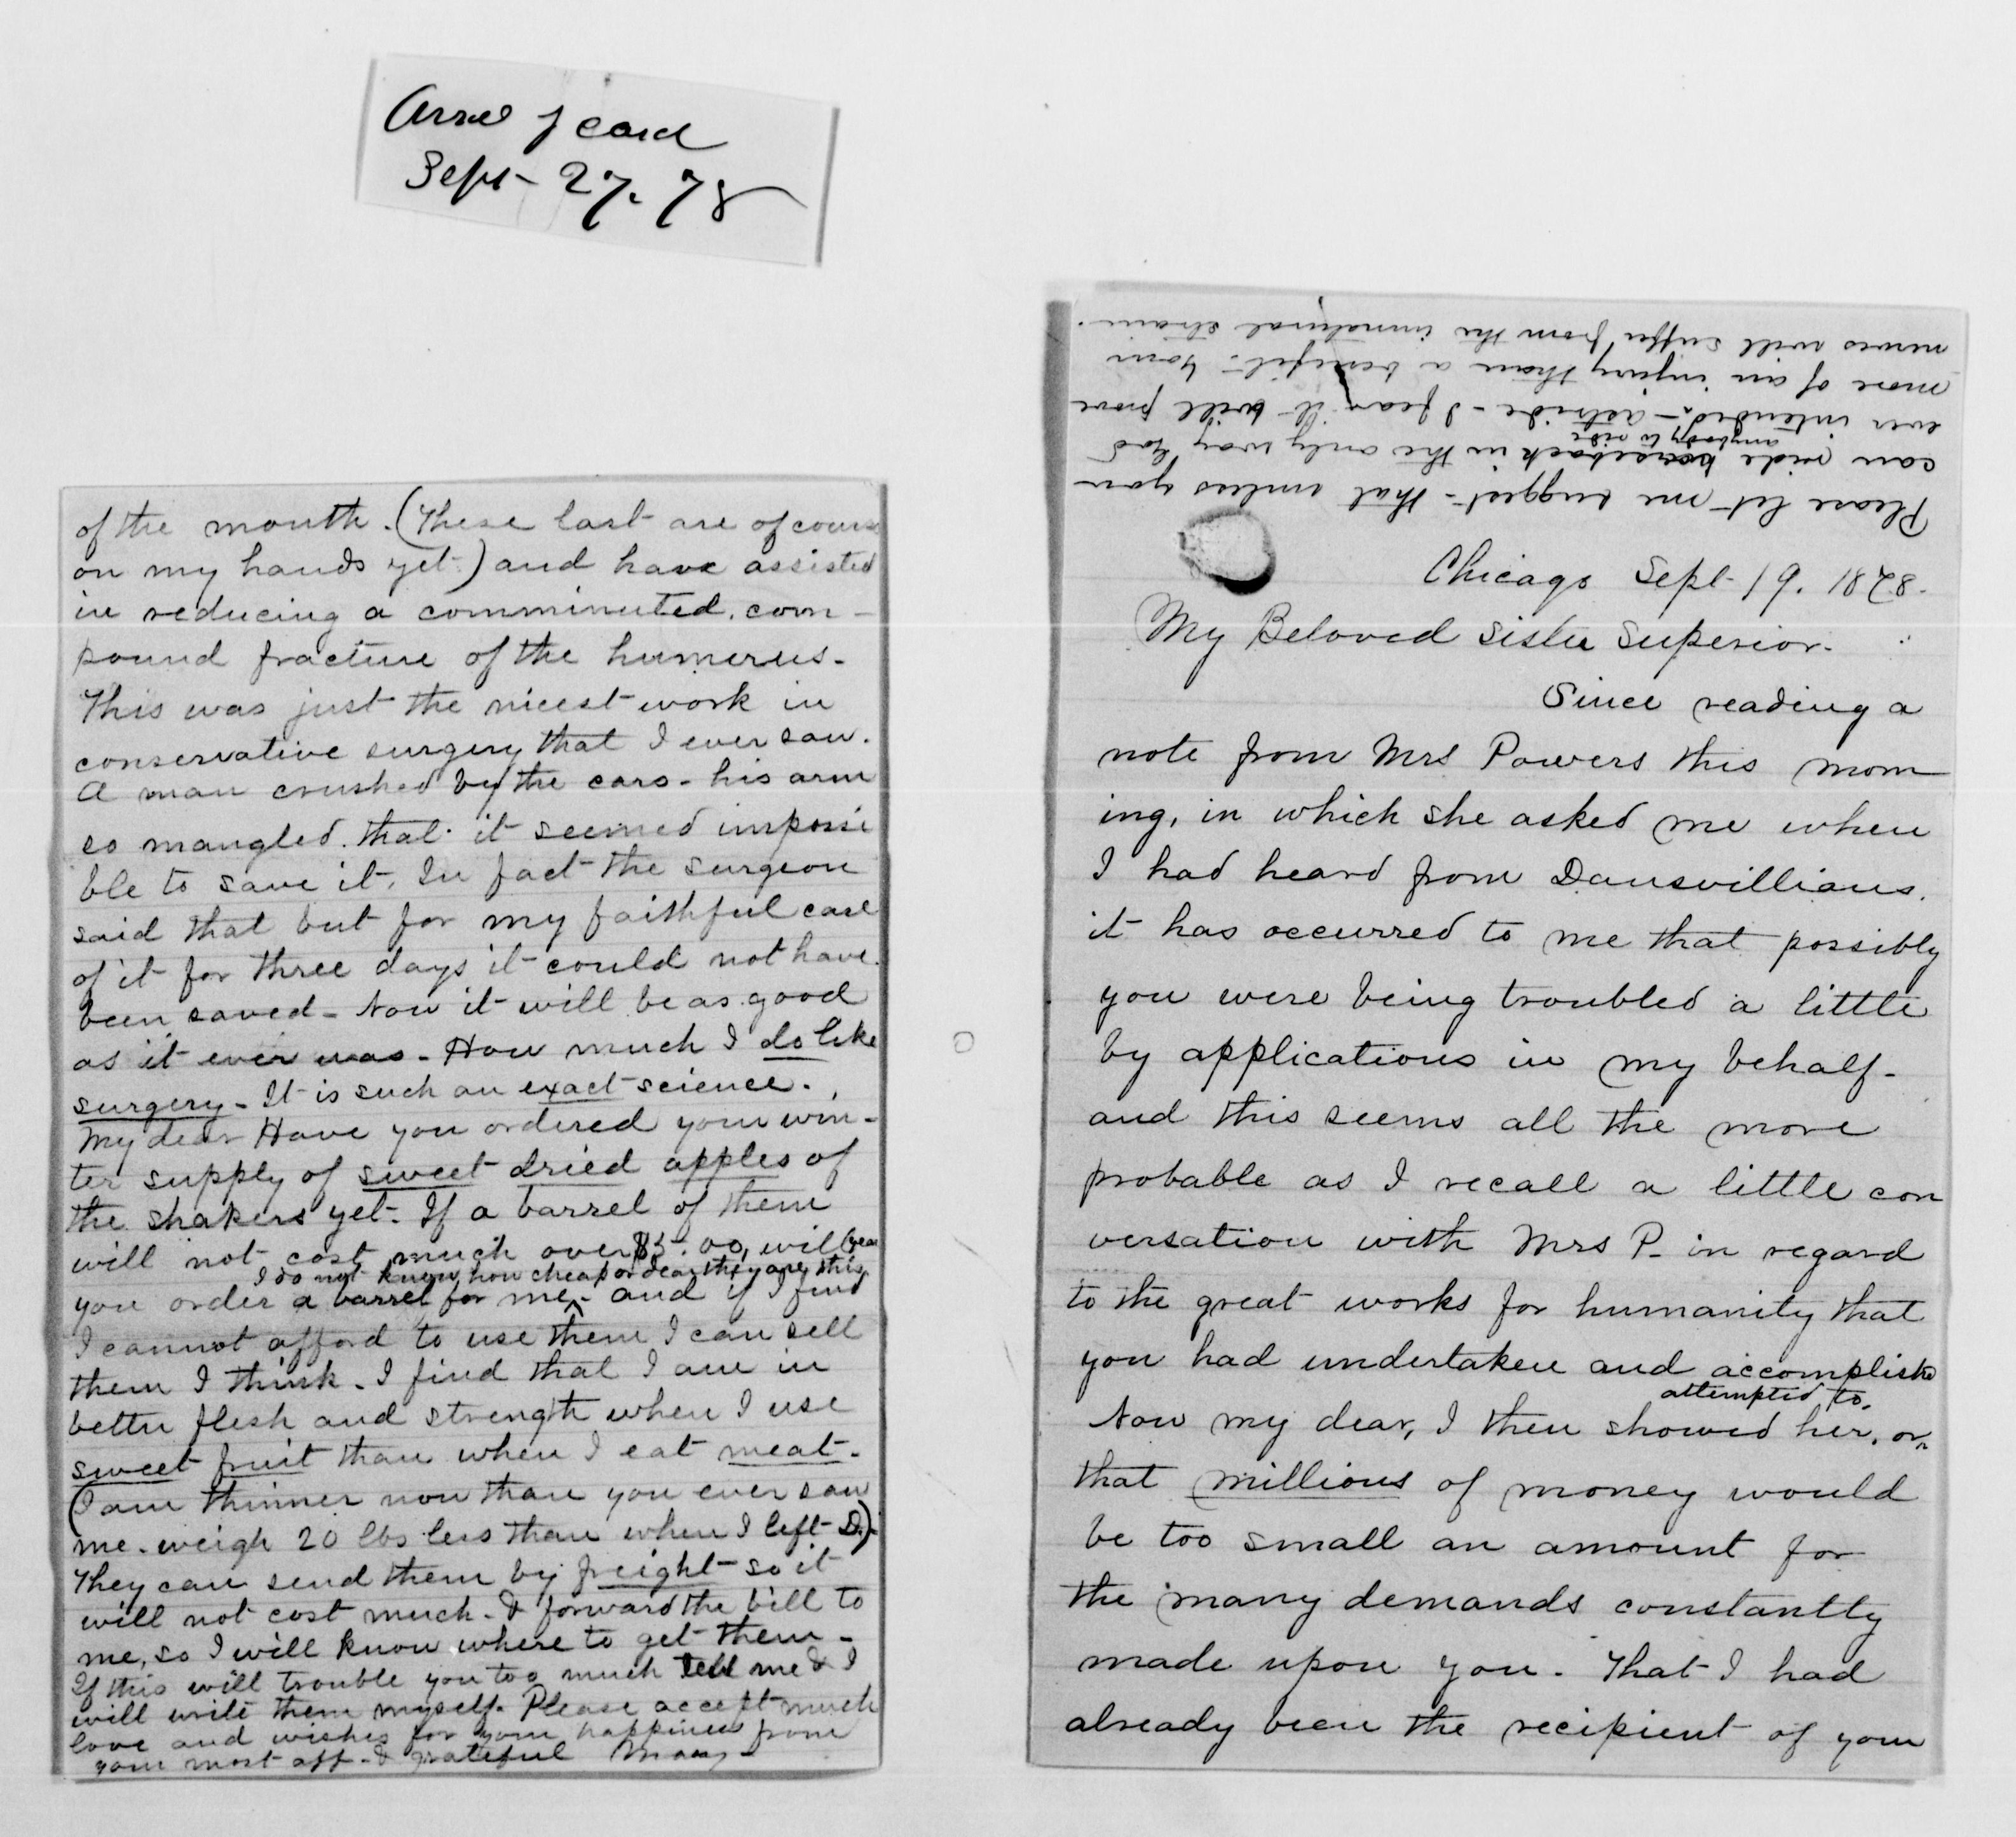 Sept 27. 78
of the mouth. (These last are of course
on my hands yet.) and have assisted
in reducing a comminuted, com-
pound fracture of the humerus.
This was just the nicest work in
conservative surgery that I ever saw.
A man crushed by the cars - his arm
so mangled that it seemed impossi
ble to save it. In fact the surgeon
said that but for my faithful care
of it for three days it could not have
been saved - Now it will be as good
as it ever was - How much I do like
surgery - It is such an exact science.
My dear Have you ordered your win-
ter supply of sweet dried apples of
the shakers yet. If a barrel of them
will not cost much over $5.00, will
I do not know how cheap or dear they are this year
you order a barrel for me ^ and if I find
I cannot afford to use them I can sell
them I think. I find that I am in
better flesh and strength when I use
sweet fruit than when I eat meat.
(I am thinner now than you ever saw
me. weigh 20 lbs less than when I left D.)
They can send them by freight so it
will not cost much - & forward the bill to
me, so I will know where to get them -
If this will trouble you too much tell me & I
will write them myself. Please accept much
love and wishes for your happiness from
your most aff. & grateful Mary -
Please let me suggest - that unless you
can ride horseback in the only way God
anybody to ride
ever intended - astride - I fear it will prove
more of an injury than a benefit - Your
nerves will suffer from the unnatural strain.
Chicago Sept 19. 1878.
My Beloved Sister Superior.
Since reading a
note from Mrs Powers this morn
ing, in which she asked me when
I had heard from Dansvillians.
it has occurred to me that possibly
you were being troubled a little
by applications in my behalf -
and this seems all the more
probable as I recall a little con
versation with Mrs P. in regard
to the great works for humanity that
you had undertaken and accomplishd
attempted to.
Now my dear, I then showed her, or ^
that millions of money would
be too small an amount for
the many demands constantly
made upon you. That I had
already been the recipient of your